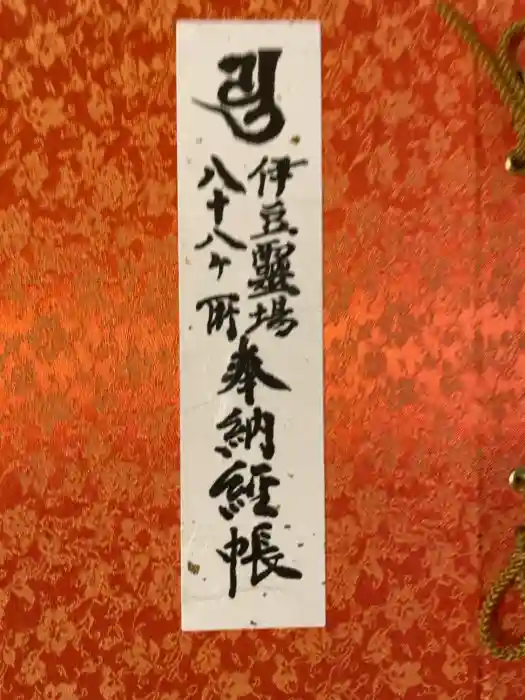 伊豆靈場
八十八ケ所
奉納経帳